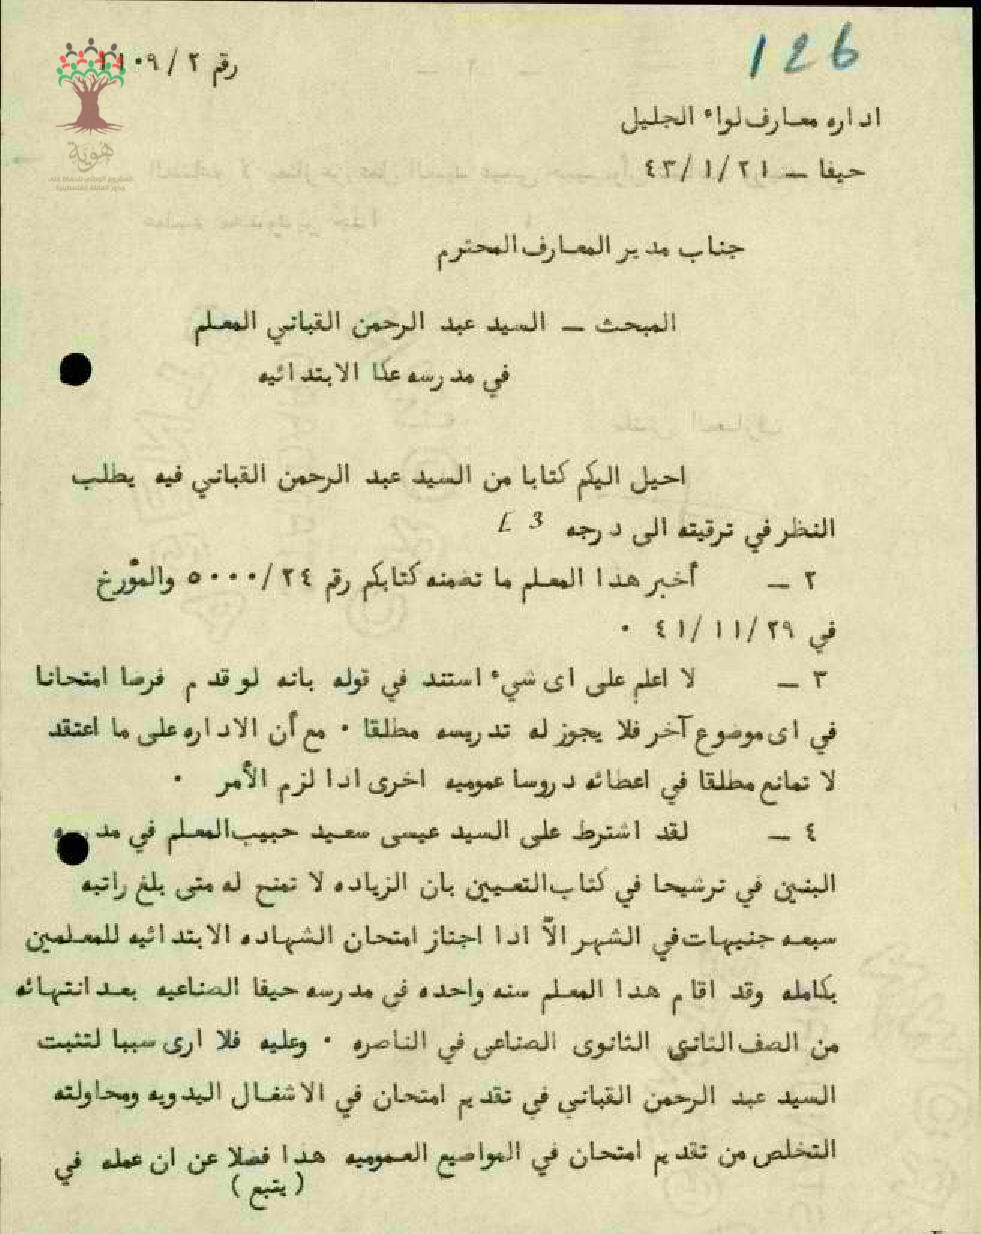 126
رقم ٢ / ١١٠٩
هوية
المشروع الوطني للحفاظ على
جذور العائلة الفلسطينية
اداره معارف لواء الجليل
حيفا — ٤٣/١/٢١
جناب مدير المعارف المحترم
المبحث — السيد عبد الرحمن القباني المعلم
في مدرسه عكا الابتدائيه
احيل اليكم كتابا من السيد عبد الرحمن القباني فيه يطلب
النظر في ترقيته الى درجه 3
٢ — أخبر هذا المعلم ما تضمنه كتابكم رقم ٥٠٠٠/٢٤ والمؤرخ
في ٤١/١١/٢٩ ٠
٣ — لا اعلم على اى شيء استند في قوله بانه لو قدم فرضا امتحانا
في اى موضوع آخر فلا يجوز له تدريسه مطلقا ٠ مع أن الاداره على ما اعتقد
لا تمانع مطلقا في اعطائه دروسا عموميه اخرى اذا لزم الأمر ٠
٤ — لقد اشترط على السيد عيسى سعيد حبيب المعلم في مدرسه
البنين في ترشيحا في كتاب التعيين بان الزياده لا تمنح له متى بلغ راتبه
سبعه جنيهات في الشهر الاّ اذا اجتاز امتحان الشهاده الابتدائيه للمعلمين
بكامله وقد اقام هذا المعلم سنه واحده في مدرسه حيفا الصناعيه بعد انتهائه
من الصف الثاني الثانوى الصناعى في الناصره ٠ وعليه فلا ارى سببا لتثبت
السيد عبد الرحمن القباني في تقديم امتحان في الاشغال اليدويه ومحاولته
التخلص من تقديم امتحان في المواضيع العموميه هذا فضلا عن ان عمله في
( يتبع )